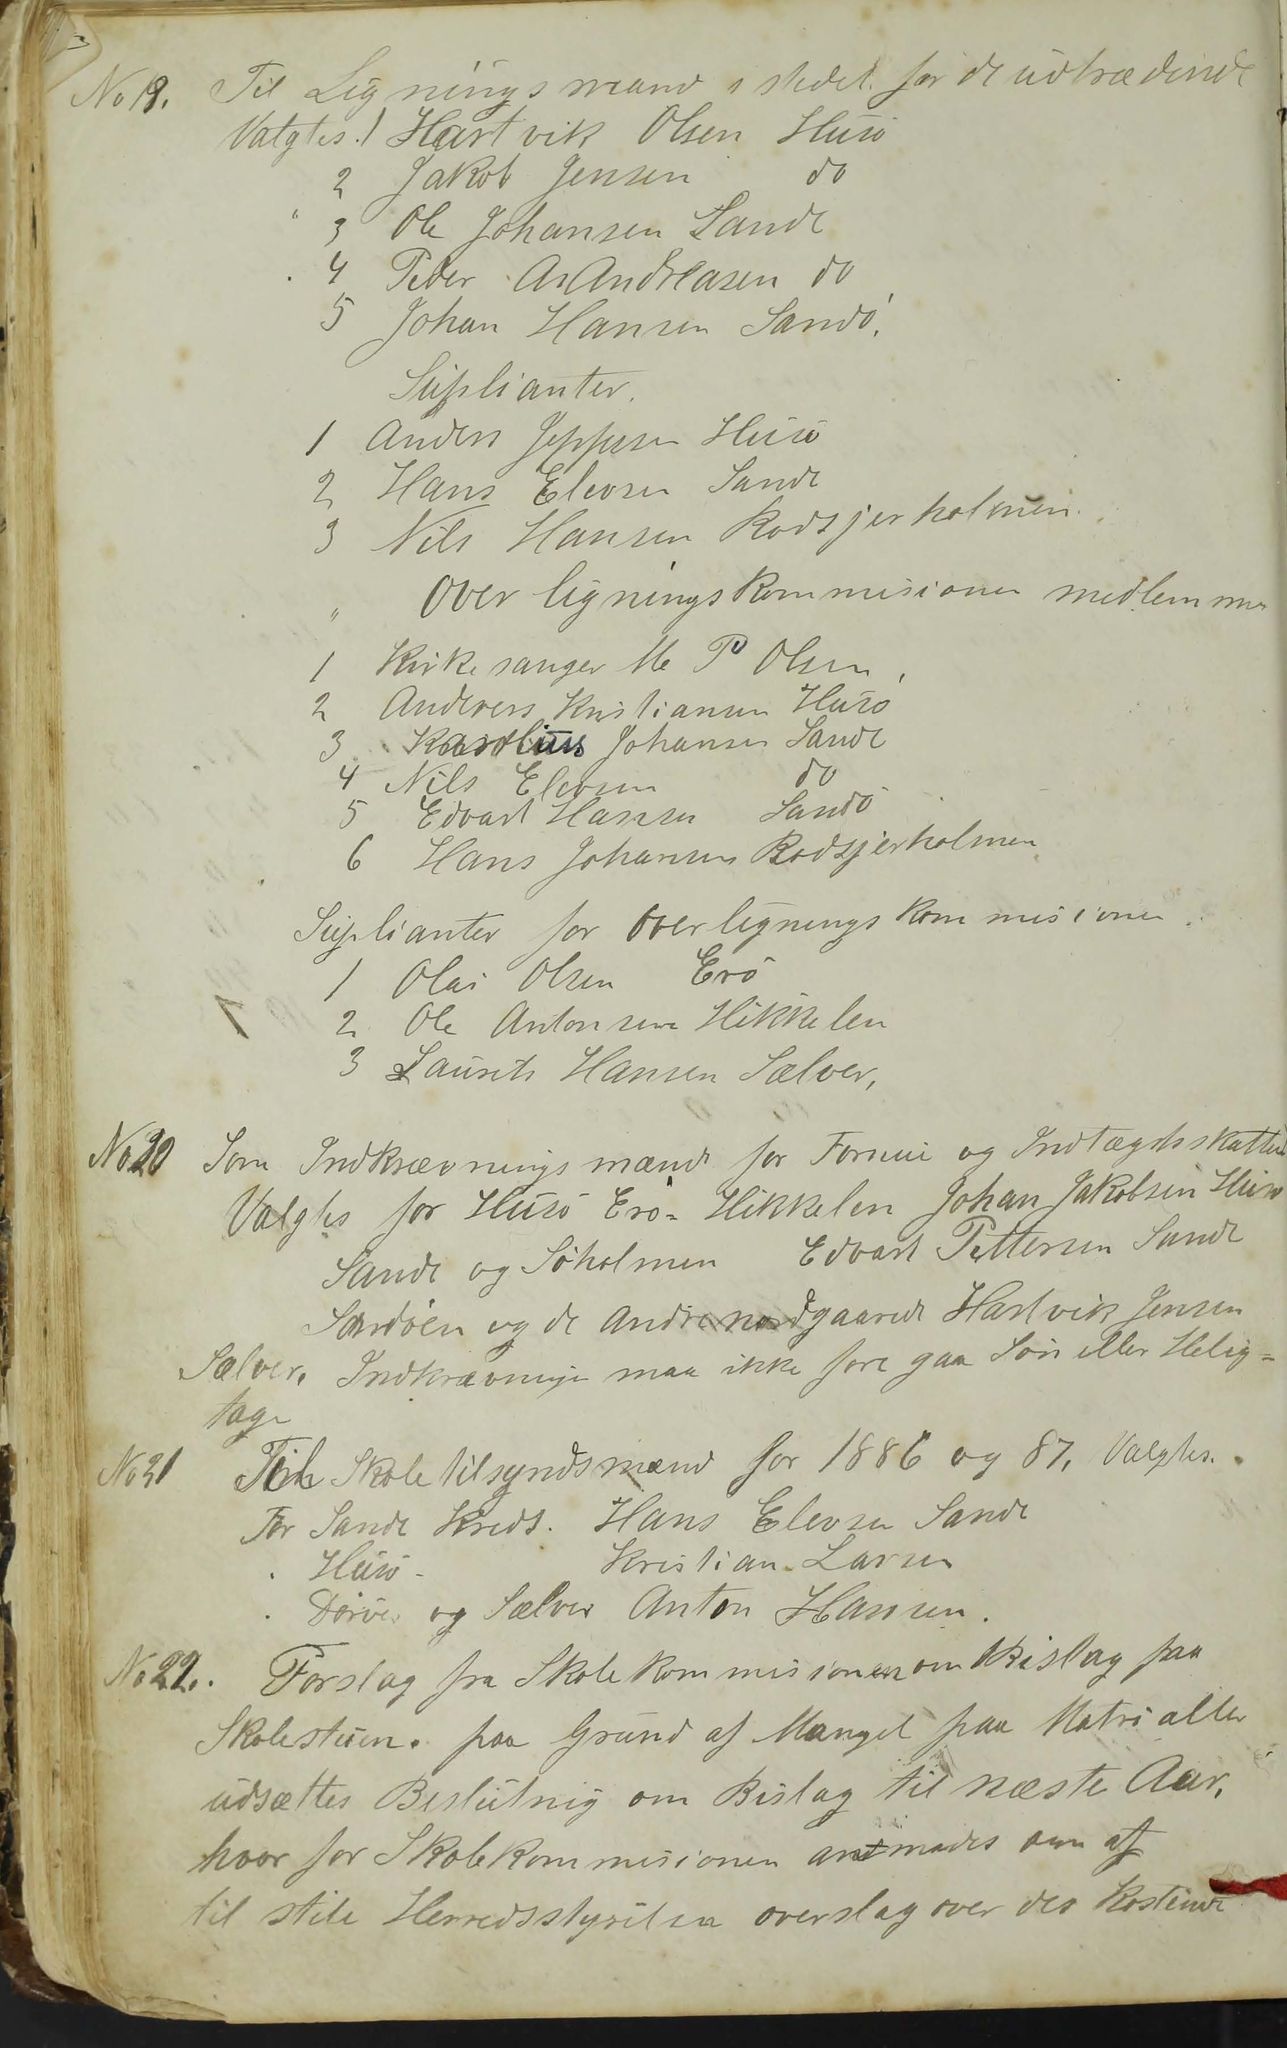 No 19. Til Ligningsmænd i stedet for de udtrædende
Valgtes. 1 Hartvik Olsen Husö
2 Jakob Jensen do
3 Ole Johansen Sande
4 Peder A Andreasen do
5 Johan Hansen Sandö.
Suplianter.
1 Anders Jeppsen Husö
2 Hans Elevsen Sande
3 Nils Hansen Rodsjerholmen.
" Over ligningskommisionen medlemmer
1 Kirkesanger M P Olsen,
2 Anders Kristiansen Husö
3 Johansen Sande
4 Nils Elevsen do
5 Edvart Hansen Sandö
6 Hans Johansen Rodsjerholmen
Suplianter for Overlignings kommisionen.
1 Olai Olsen Erö
2 Ole Antonsen Hikkelen
3 Laurits Hansen Sælver,
No 20 Som Indkrævningsmænd for Formue og Indtægtsskatten
Valgtes for Husö Erö= Hikkelen Johan Jakobsen Husö
Sande og Söholmen Edvart Pettersen Sande
Sandöen og de Andre nordgaarde Hartvik Jensen
Sælver. Indkrævningen maa ikke fore gaa Søn eller Helig=
tage
No 21 Til Skoletilsyndsmænd for 1886 og 87, Valgtes.
For Sande Kreds. Hans Elevsen Sande
. Husö - Kristian Larsen
. Dörvær og Sælver Anton Hansen.
No 22. Forslag fra Skolekommisionen om Bislag paa
Skolestuen. paa Grund af Mangel paa Matrialler
udsættes Beslutnig om Bislag til næste Aar,
hvor for Skolekommisionen anmodes om at
til stile Herredsstyrelsen overslag over det kostende